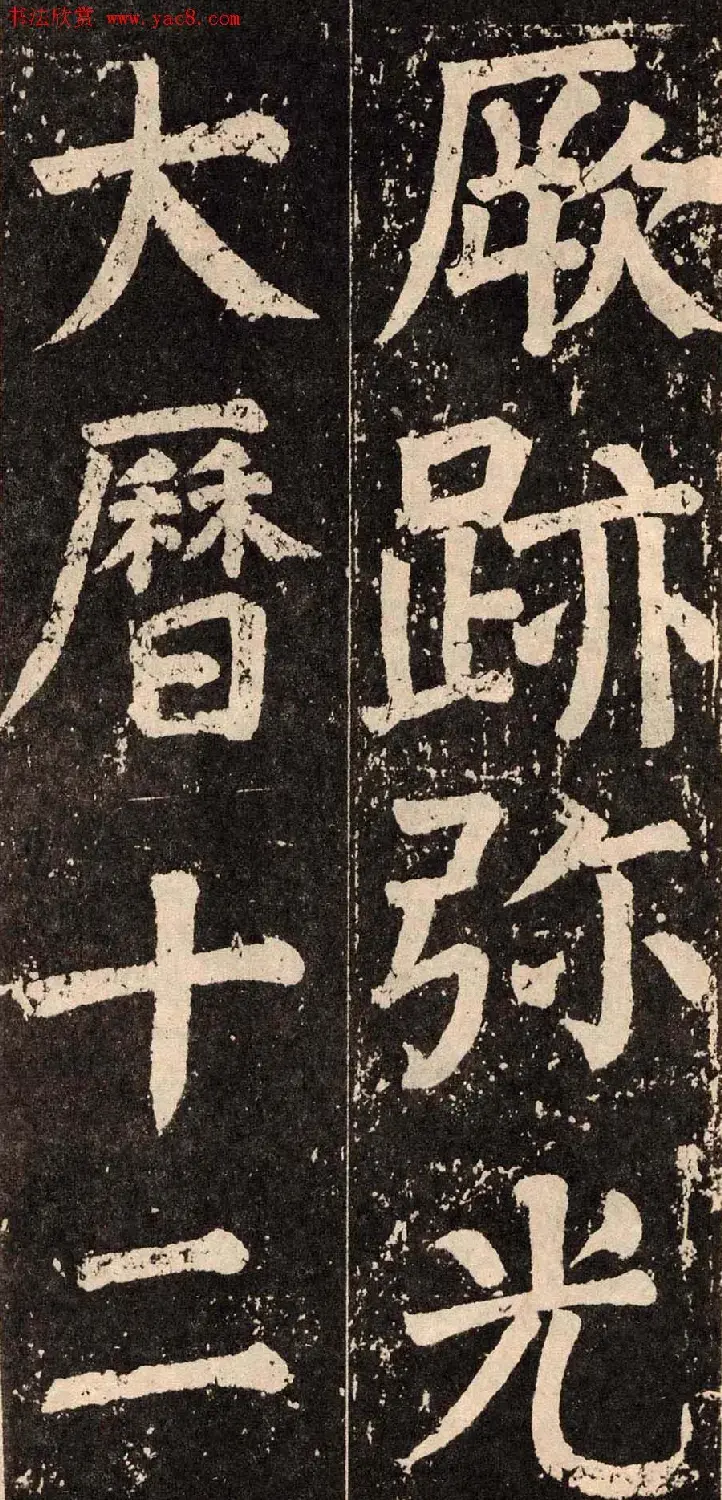 书法欣赏 www.yac8.com
厥跡弥光
大曆十二